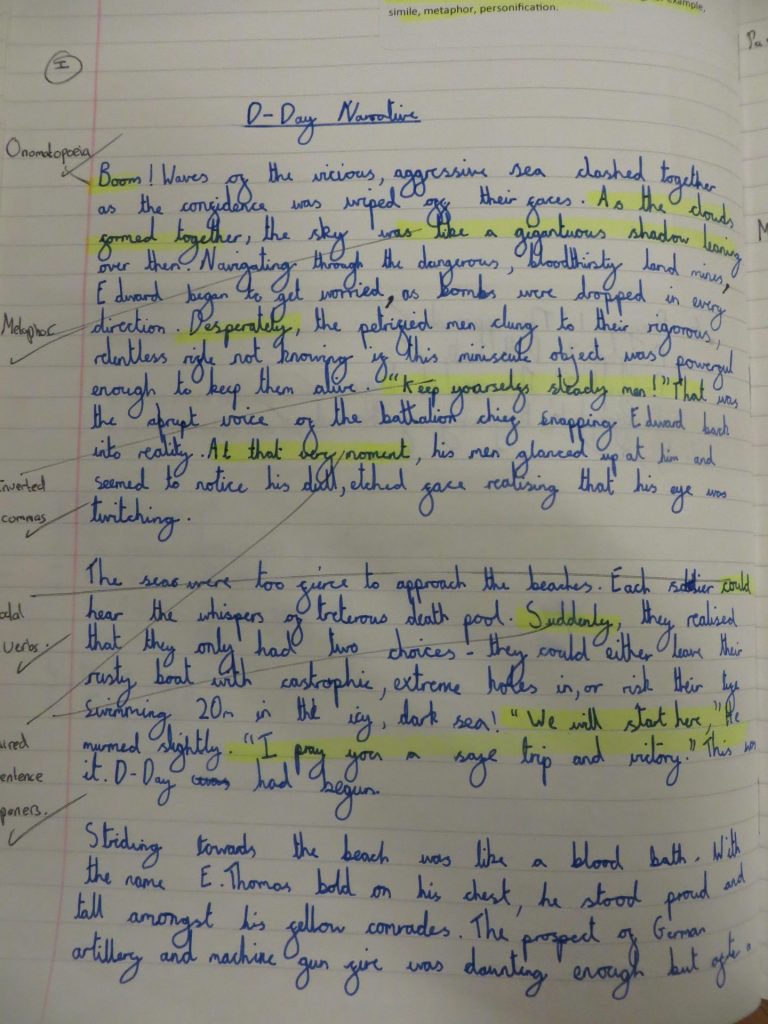 example,
simile, metaphor, personification.
I
D-Day Narrative
Onomatopoeia
Boom! Waves of the vicious, aggressive sea clashed together
as the confidence was wiped off their faces. As the clouds
formed together, the sky was like a gigantuous shadow leaning
over them. Navigating through the dangerous, bloodthirsty land mines,
Edward began to get worried, as bombs were dropped in every
Metaphor
direction. Desperately, the petrified men clung to their rigorous,
relentless rifle not knowing if this miniscule object was powerful
enough to keep them alive. "Keep yourselfs steady men!" That was
the abrupt voice of the battalion chief snapping Edward back
into reality. At that very moment, his men glanced up at him and
Inverted
commas
seemed to notice his dull, etched face realising that his eye was
twitching.
The seas were too fierce to approach the beaches. Each soldier could
odal
verbs.
hear the whispers of treterous death pool. Suddenly, they realised
that they only had two choices - they could either leave their
rusty boat with castrophic, extreme holes in, or risk their life
swimming 20m in the icy, dark sea! "We will start here," He
ired
entence
peners.
murmed slightly. "I pray you a safe trip and victory." This was
it. D-Day had begun.
Striding towards the beach was like a blood bath. With
the name E.Thomas bold on his chest, he stood proud and
tall amongst his fellow comrades. The prospect of German
artillery and machine gun fire was daunting enough but after a